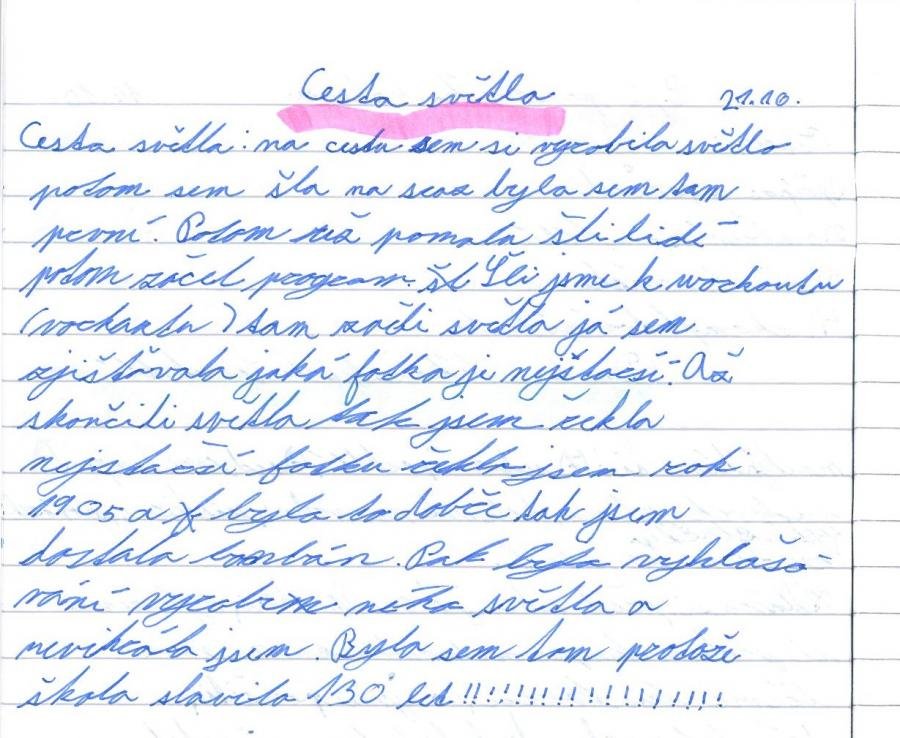 Cesta světla 21.10.
Cesta světla: na cestu sem si vyrobila světlo
potom sem šla na sraz byla sem tam
první. Potom než pomalu šli lidé
potom začel program. Šli jsme k workoutu
(vorkautu) tam začli světla já sem
zjišťovala jaká fotka je nejštarší. Až
skončili světla tak jsem řekla
nejstarší fotku řekla jsem rok
1905 a byla to dobře tak jsem
dostala bonbón. Pak bylo vyhlašo
vání vyrobeného světla a
nevihrála jsem. Byla sem tam protože
škola slavila 130 let !!!!!!!!!!!!!!!!!!